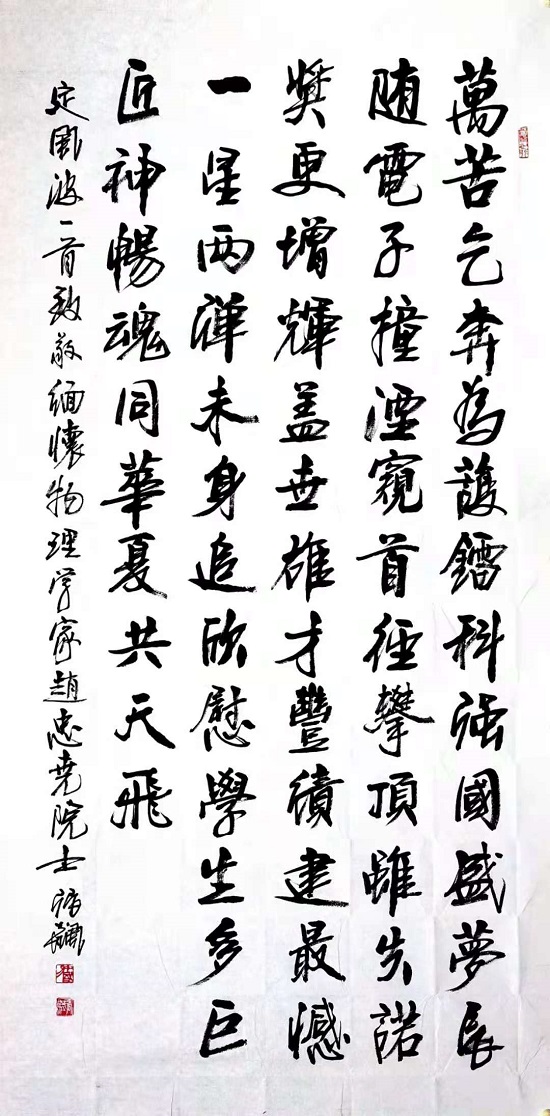 萬苦乞奔為護鐳科强國盛夢長
随電子撞湮窺首徑攀頂雖失諾
獎更增輝盖世雄才豐績建最憾
一星两彈未身追欣慰學生多巨
匠神暢魂同華夏共天飛
定風波一首致敬緬懷物理學家趙忠堯院士